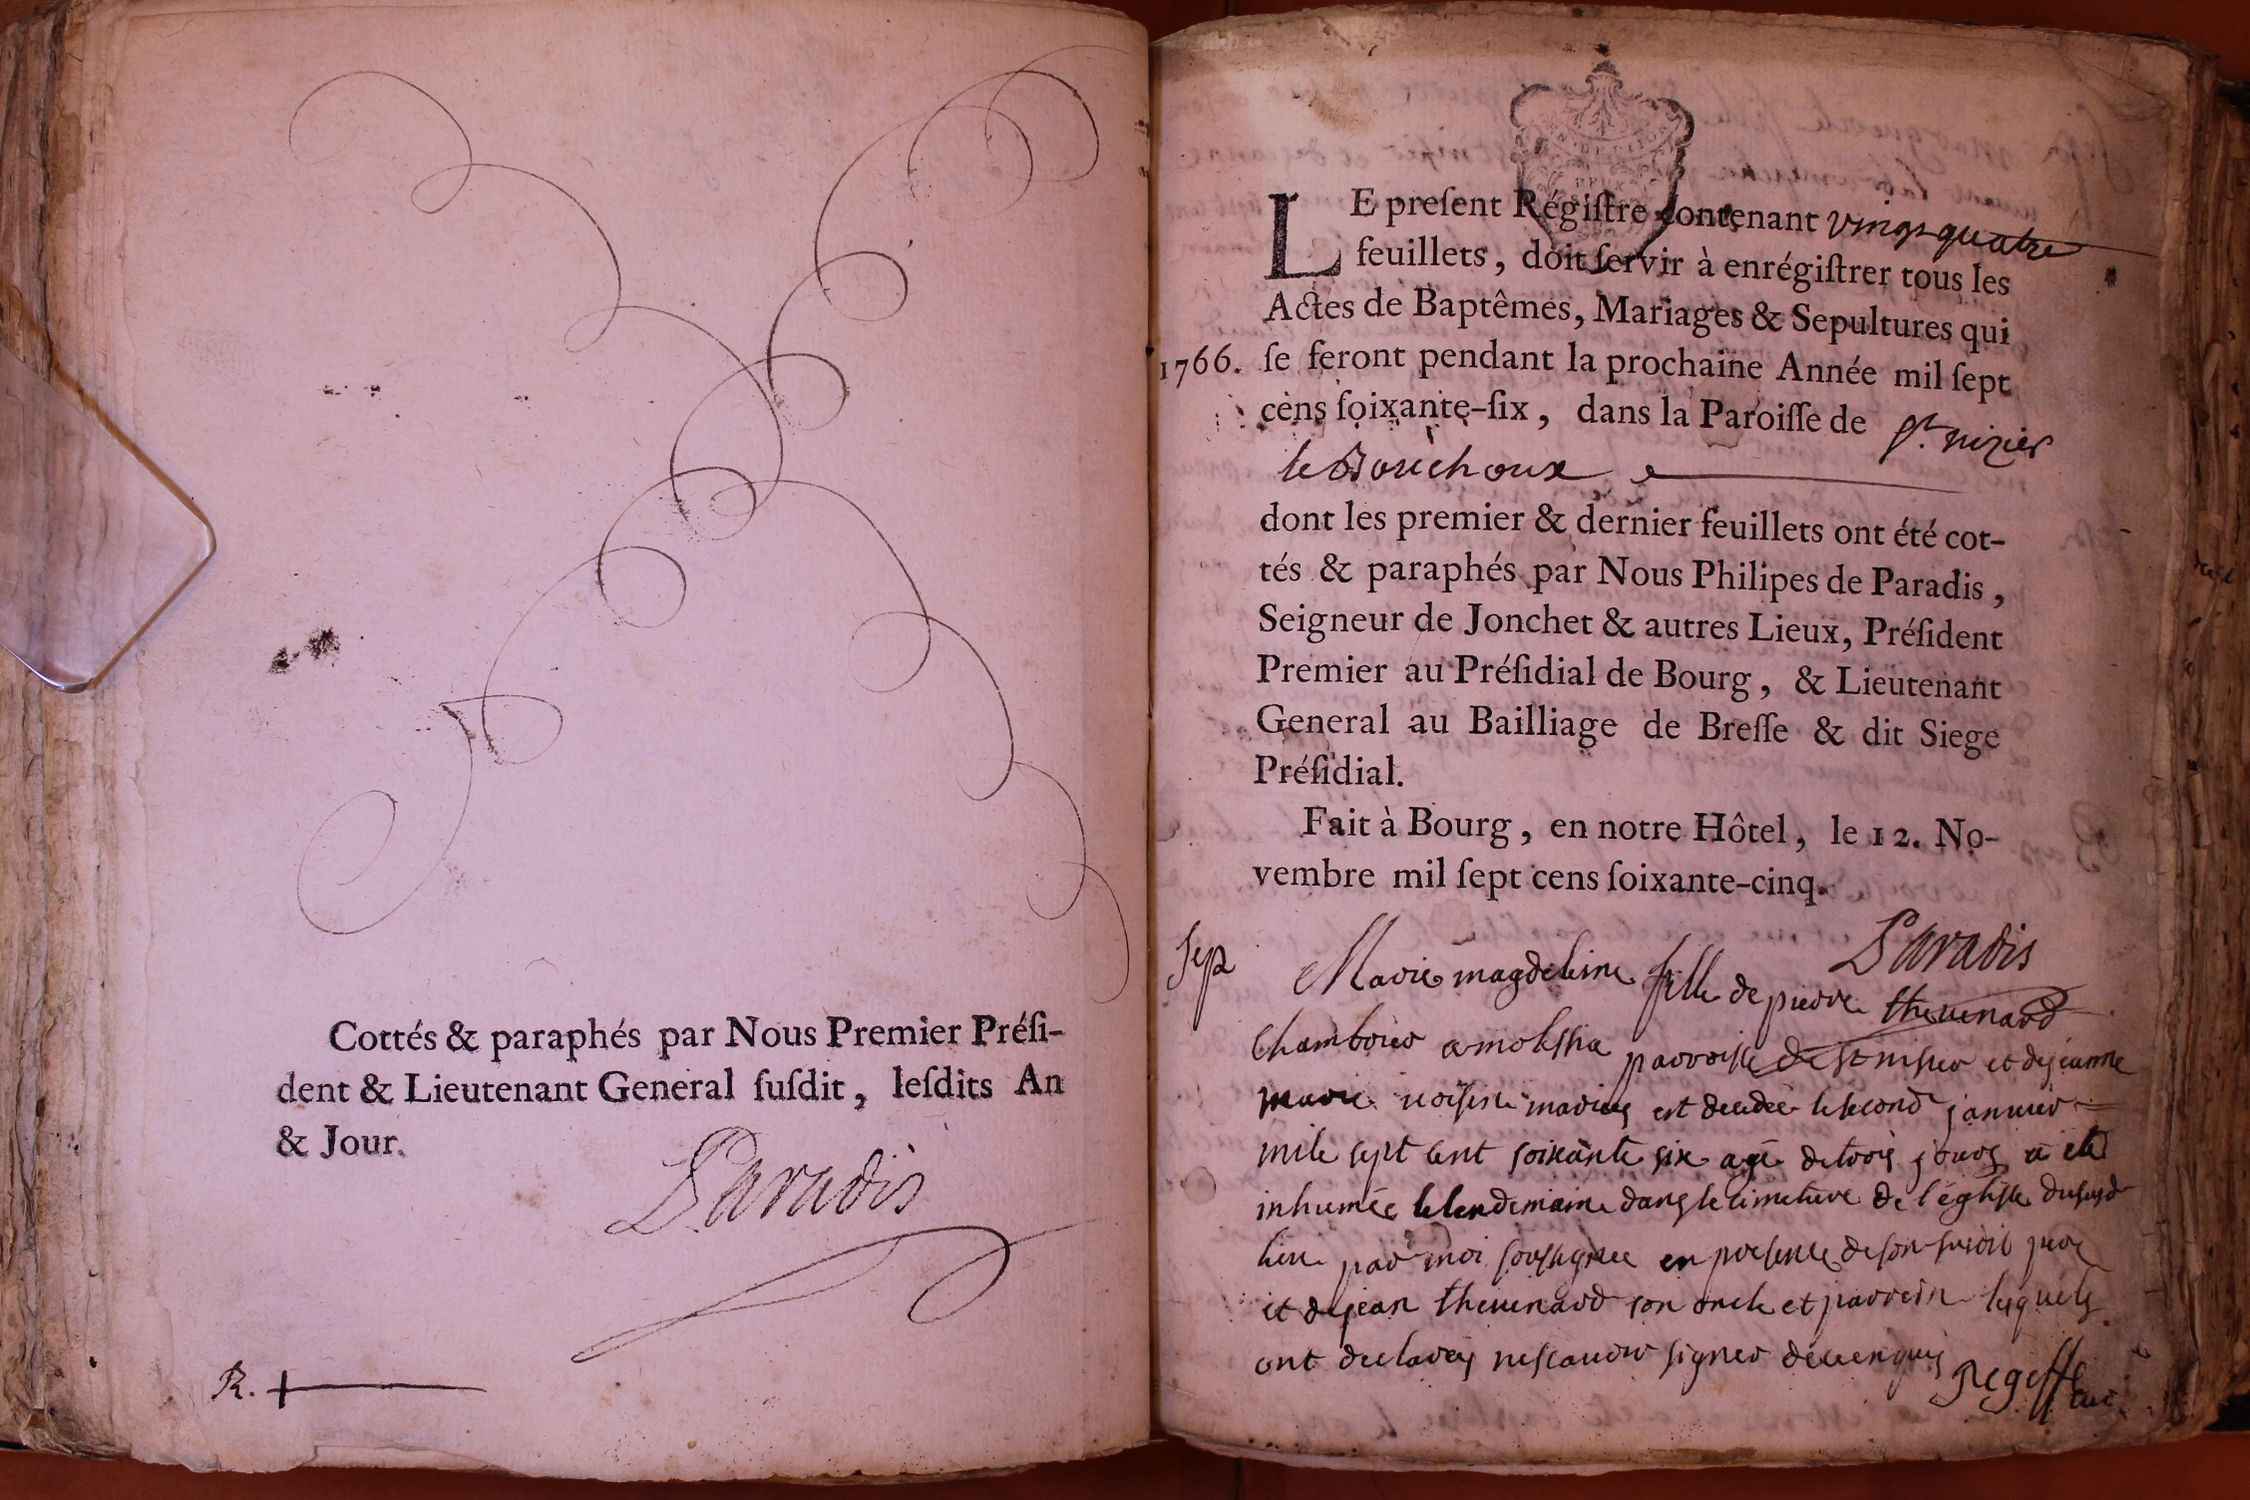 Cottés & paraphés par Nous Premier Préſi-
dent & Lieutenant General ſuſdit, leſdits An
& Jour.
Paradis
R. +
LE preſent Régiſtre contenant vingt quatre
feuillets, doit ſervir à enrégiſtrer tous les
Actes de Baptêmes, Mariages & Sepultures qui
1766. ſe feront pendant la prochaine Année mil ſept
cens ſoixante-ſix, dans la Paroiſſe de St. nizier
le Bouchoux
dont les premier & dernier feuillets ont été cot-
tés & paraphés par Nous Philipes de Paradis,
Seigneur de Jonchet & autres Lieux, Préſident
Premier au Préſidial de Bourg, & Lieutenant
General au Bailliage de Breſſe & dit Siege
Préſidial.
Fait à Bourg, en notre Hôtel, le 12. No-
vembre mil ſept cens ſoixante-cinq.
Paradis
Sep Marie magdeleine fille de pierre thevenard
parroisse de st nisier et de jeanne
marie mariés est decedée le second janvier
mile sept cent soixante six agé de trois jours a eté
inhumée le lendemain dans le cimetiere de l'église du susd
lieu par moi soussigné en presence de son pere
et de jean thevenard son oncle et parrein lesquels
ont declarés ne scavoir signer de ce enquis